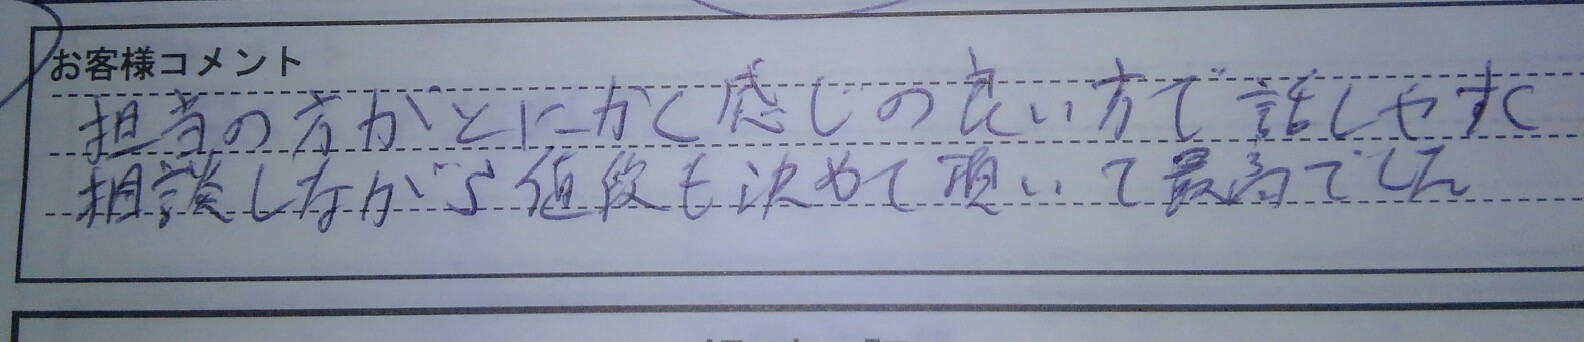 お客様コメント
担当の方がとにかく感じの良い方で話しやすく
相談しながら値段も決めて頂いて最高でした